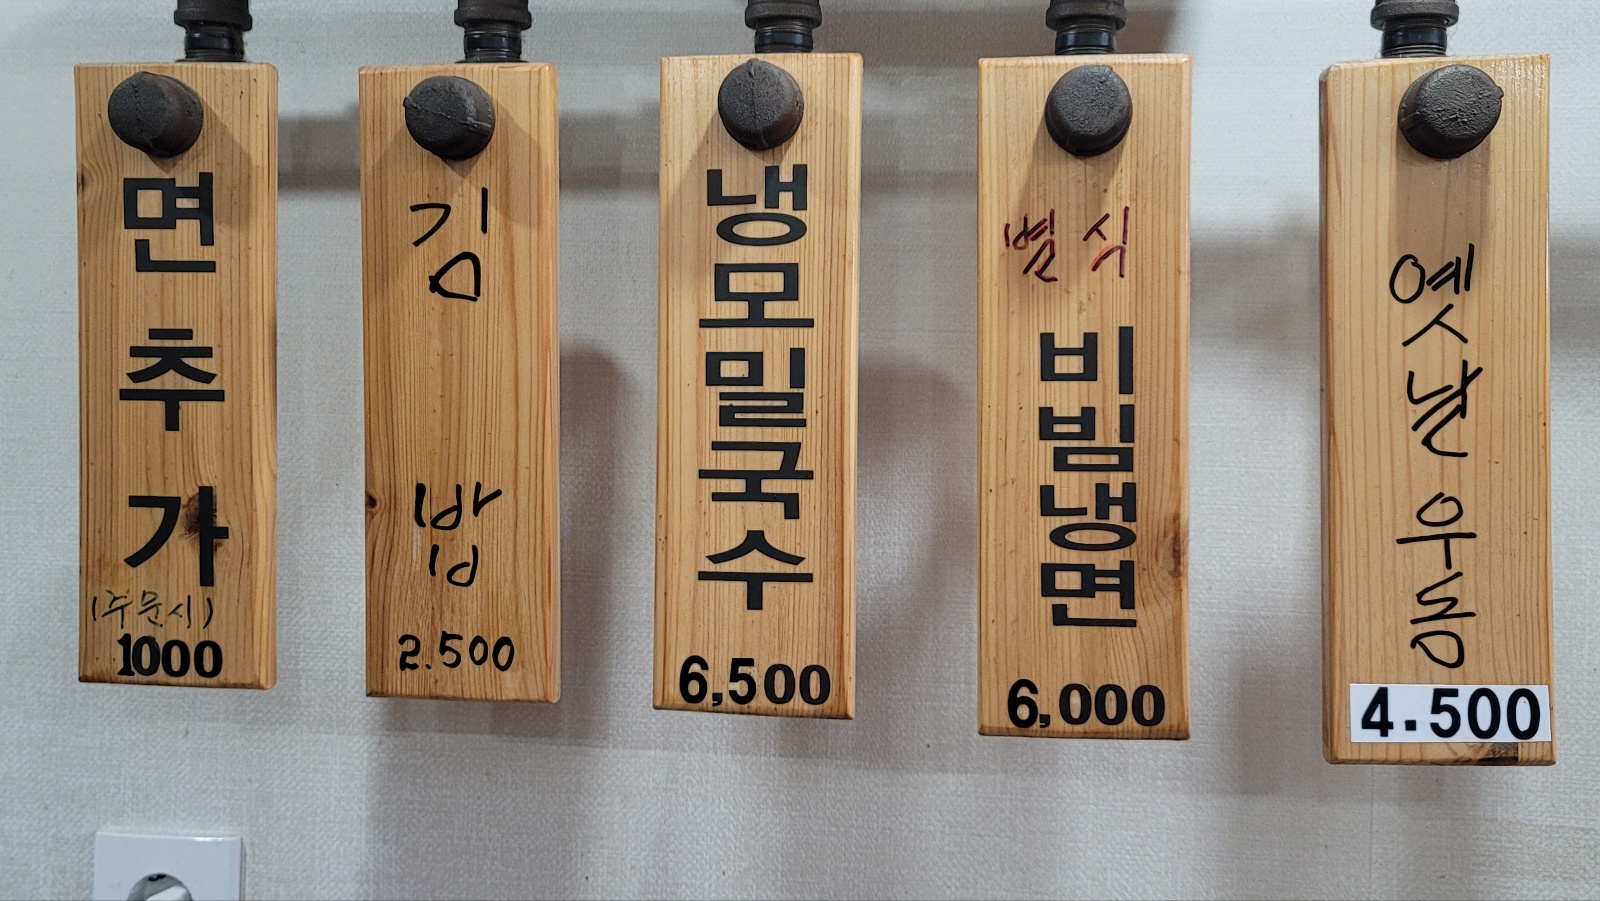 면추가
(주문시)
1000
김밥
2.500
냉모밀국수
6,500
별식
비빔냉면
6,000
옛날 우동
4.500